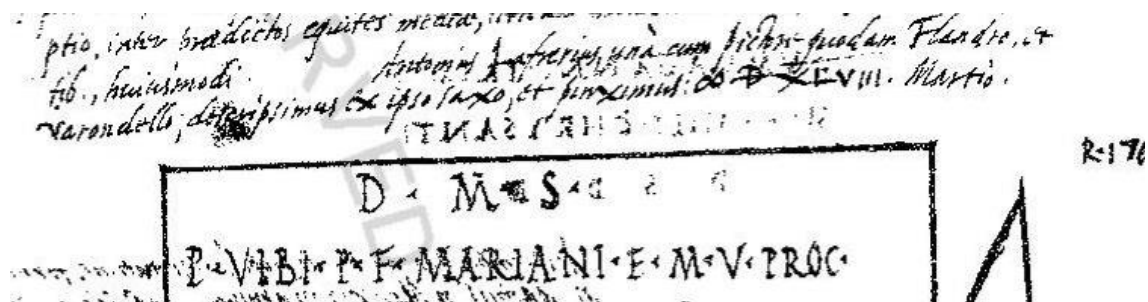 ptio, inter prædictos equites mediæ,
Antonius Lafrerius, unà cum pictore quodam Flandro, et
tib., huiusmodi.
Varondello, descripsimus ex ipso saxo, et pinximus: ∞ D XLVIII. Martio.
R-176
D · M · S ·
P · VIBI · P · F · MARIANI · E · M · V · PROC ·